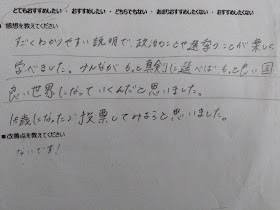 とてもおすすめしたい ・ おすすめしたい ・ どちらでもない ・ あまりおすすめしたくない ・ おすすめしたくない
■感想を教えてください
だくわかりやすい説明で、政治のことや選挙のことが楽しく
学べました。みんながもっと真剣に選べばもっと良い国
良い世界になっていくんだと思いました。
18歳になったら投票してみようと思いました。
■改善点を教えてください
ないです!